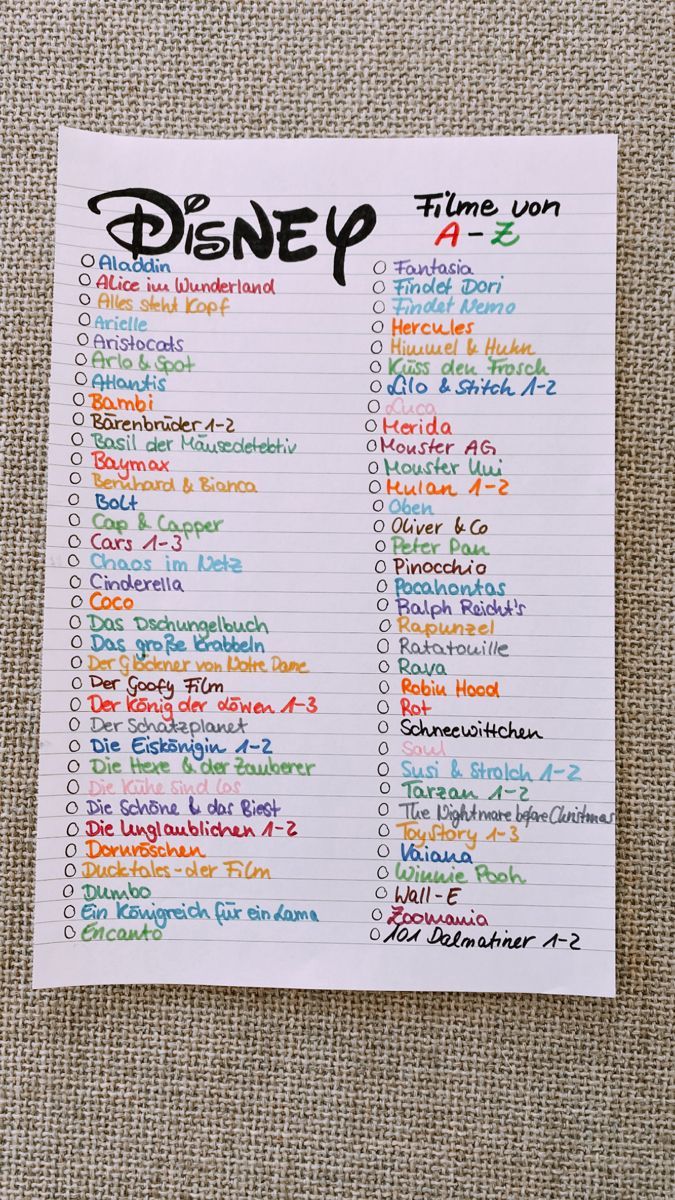 Disney
Filme von
A-Z
Aladdin
Alice im Wunderland
Alles steht Kopf
Arielle
Aristocats
Arlo & Spot
Atlantis
Bambi
Bärenbrüder 1-2
Basil der Mäusedetektiv
Baymax
Bernhard & Bianca
Bolt
Cap & Capper
Cars 1-3
Chaos im Netz
Cinderella
Coco
Das Dschungelbuch
Das große Krabbeln
Der Glöckner von Notre Dame
Der Goofy Film
Der König der Löwen 1-3
Der Schatzplanet
Die Eiskönigin 1-2
Die Hexe & der Zauberer
Die Kühe sind los
Die Schöne & das Biest
Die Unglaublichen 1-2
Dornröschen
Ducktales-der Film
Dumbo
Ein Königreich für ein Lama
Encanto
Fantasia
Findet Dori
Findet Nemo
Hercules
Himmel & Huhn
Küss den Frosch
Lilo & Stitch 1-2
Luca
Merida
Monster AG
Monster Uni
Mulan 1-2
Oben
Oliver & Co
Peter Pan
Pinocchio
Pocahontas
Ralph Reicht's
Rapunzel
Ratatouille
Raya
Robin Hood
Rot
Schneewittchen
Soul
Susi & Strolch 1-2
Tarzan 1-2
The Nightmare before Christmas
ToyStory 1-3
Vaiana
Winnie Pooh
Wall-E
Zoomania
101 Dalmatiner 1-2